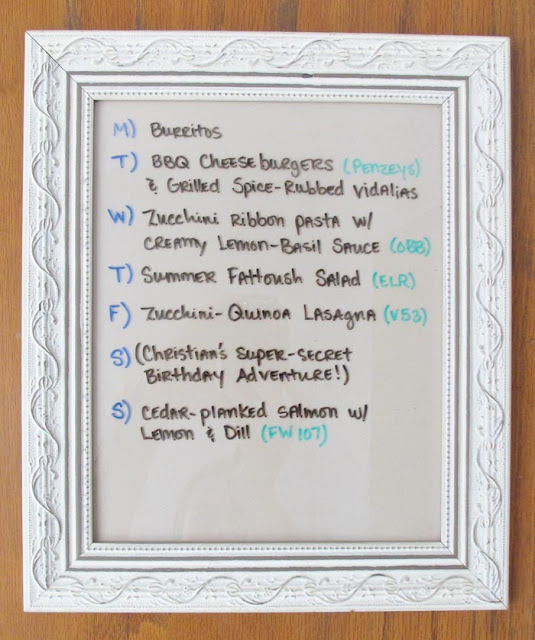 M) Burritos
T) BBQ Cheeseburgers (Penzeys)
& Grilled Spice-Rubbed Vidalias
W) Zucchini Ribbon Pasta w/
Creamy Lemon-Basil Sauce (OBB)
T) Summer Fattoush Salad (ELR)
F) Zucchini-Quinoa Lasagna (V53)
S) (Christian's Super-Secret
Birthday Adventure!)
S) Cedar-Planked Salmon w/
Lemon & Dill (FW 107)